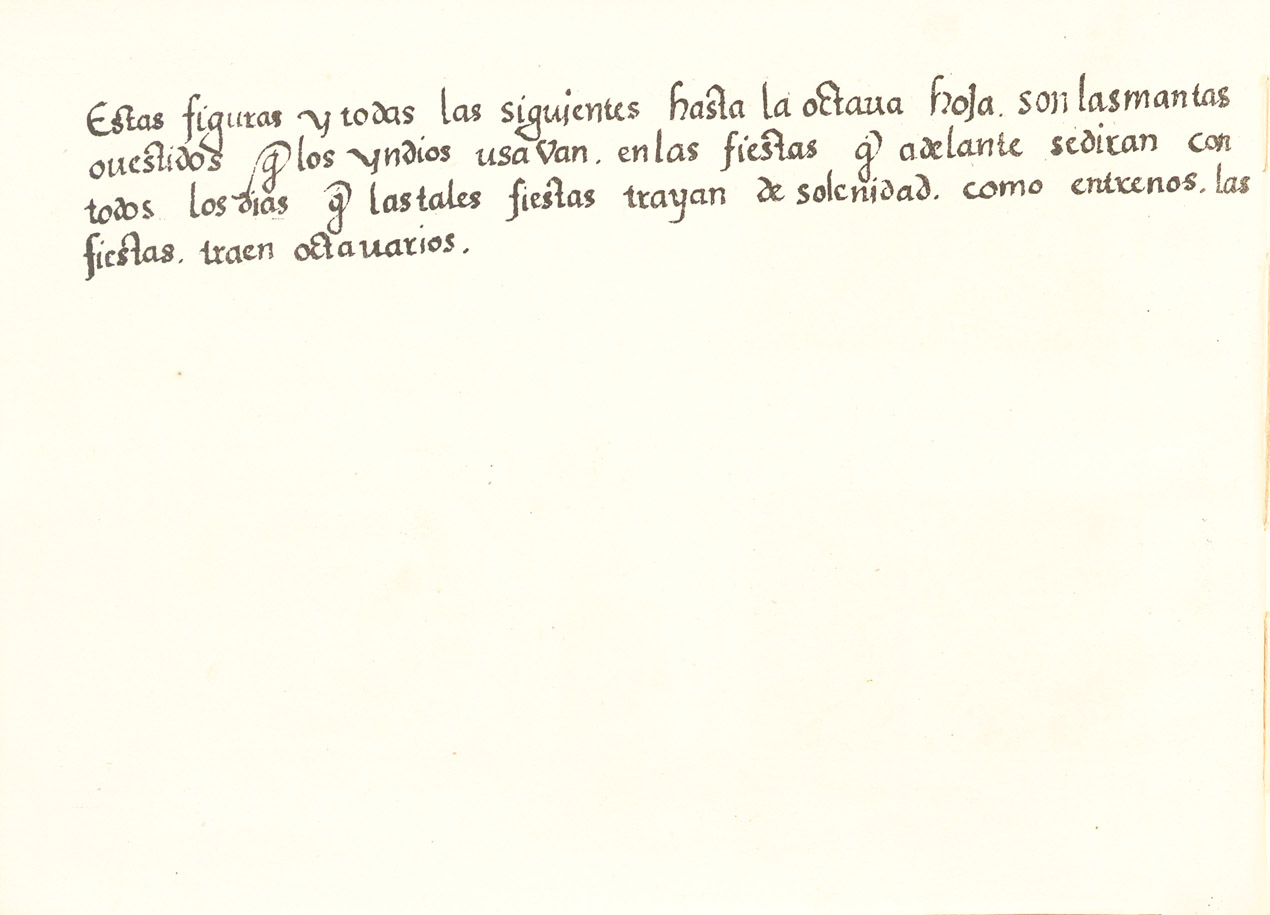 Estas figuras y todas las siguientes hasta la octaua hoja. son las mantas
o uestidos q̃ los yndios usaVan. en las fiestas q̃ adelante se diran con
todos los dias q̃ las tales fiestas trayan de solenidad. como entrenos. las
fiestas. traen octauarios.